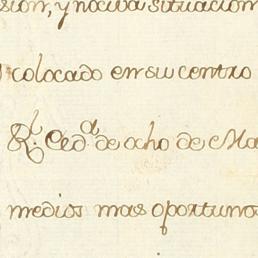 sion, y nociva situacion
colocado en su centro
Rl. Cedª de ocho de Ma
medios mas oportuno